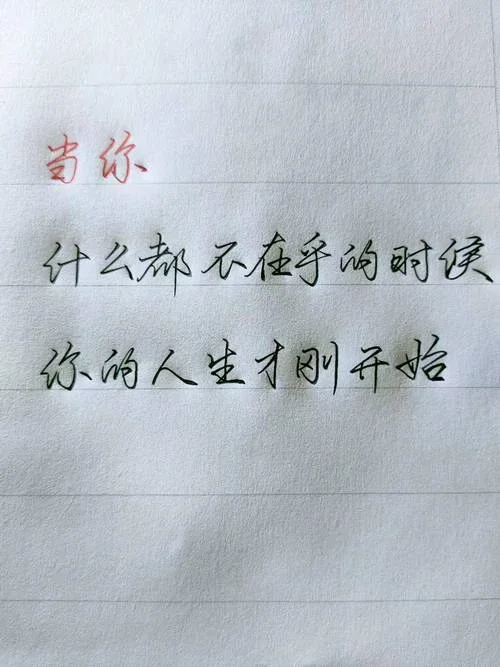 当你
什么都不在乎的时候
你的人生才刚开始